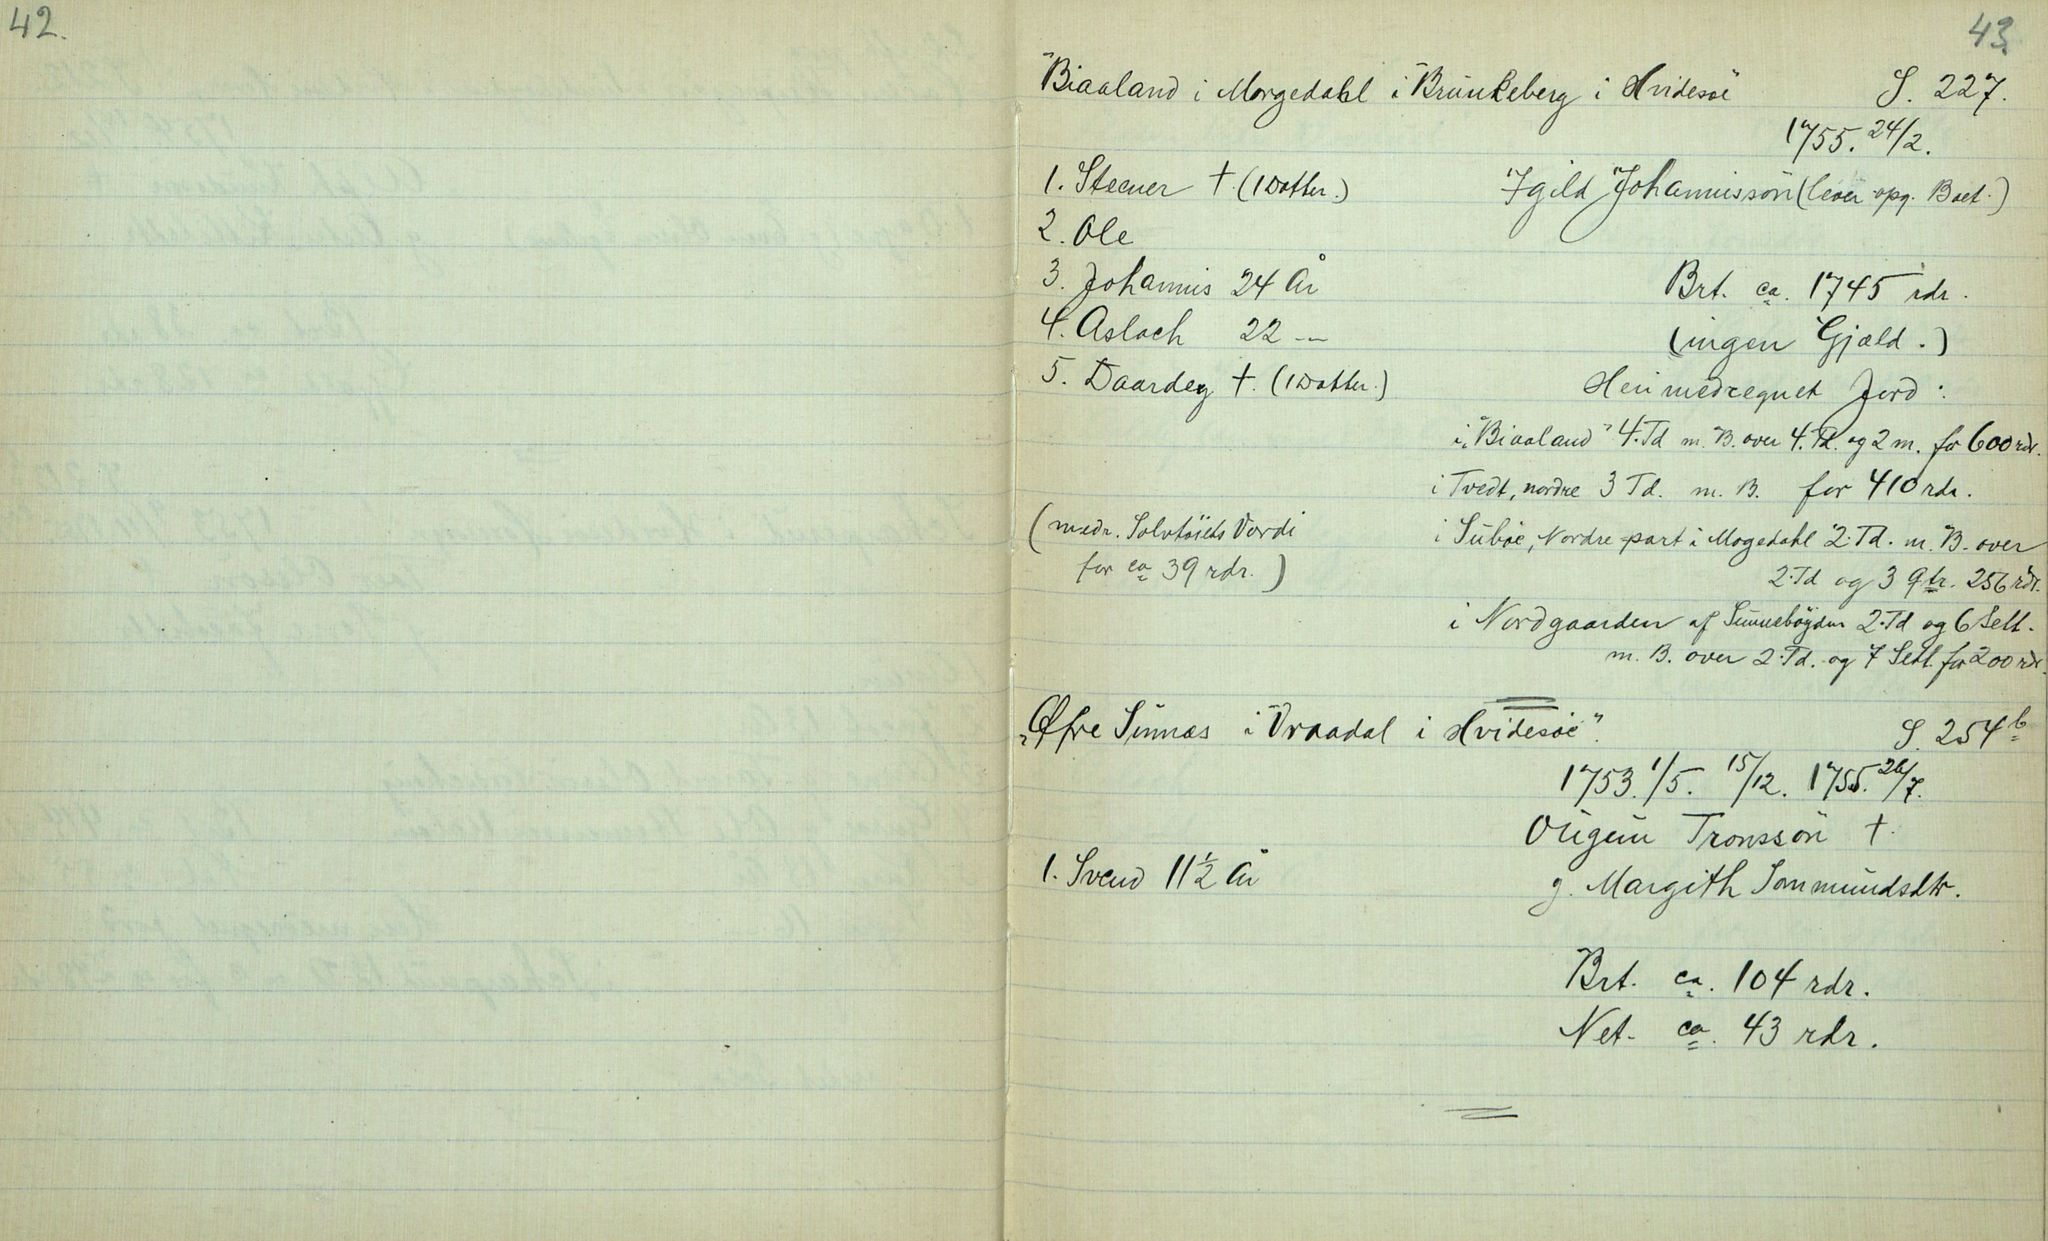 42.
43.
"Biaaland i Morgedahl i Brunkeberg i Hvidesøe" S. 227.
1755. 24/2.
1. Steener †. (1 Datter.) Igild Johannissön (lever opg. Boet.)
2. Ole
3. Johannis 24 År Brt. ca. 1745 rdr.
4. Aslach 22 — (ingen Gjæld.)
5. Daardey †. (1 Datter.) Heri medregnet Jord:
i "Biaaland" 4. Td m. B. over 4. Td. og 2 m. for 600 rdr.
i Tvedt, nordre 3 Td. m. B. for 410 rdr.
(medr. Solvtöiets Værdi i Suböe, Nordre part i Mogedahl 2. Td. m. B. over
for ca 39 rdr.) 2. Td og 3 Qtr. 256 rdr.
i Nordgaarden af Sunnebögden 2. Td og 6 Sett.
m. B. over 2. Td. og 7 Sett. for 200 rdr.
"Øfre Sinnæs i Vraadal i Hvidesöe". S. 254b
1753. 1/5. 15/12. 1755. 26/7.
Ougun Tronssön †.
1. Svend 11½ År g. Margith Sommundsdtr.
Brt. ca. 104 rdr.
Net. ca. 43 rdr.